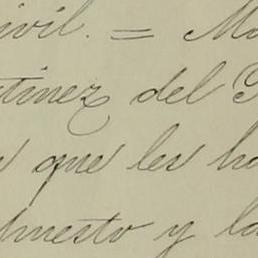 ivil. = Ma
tinez del
que les ha
puesto y la